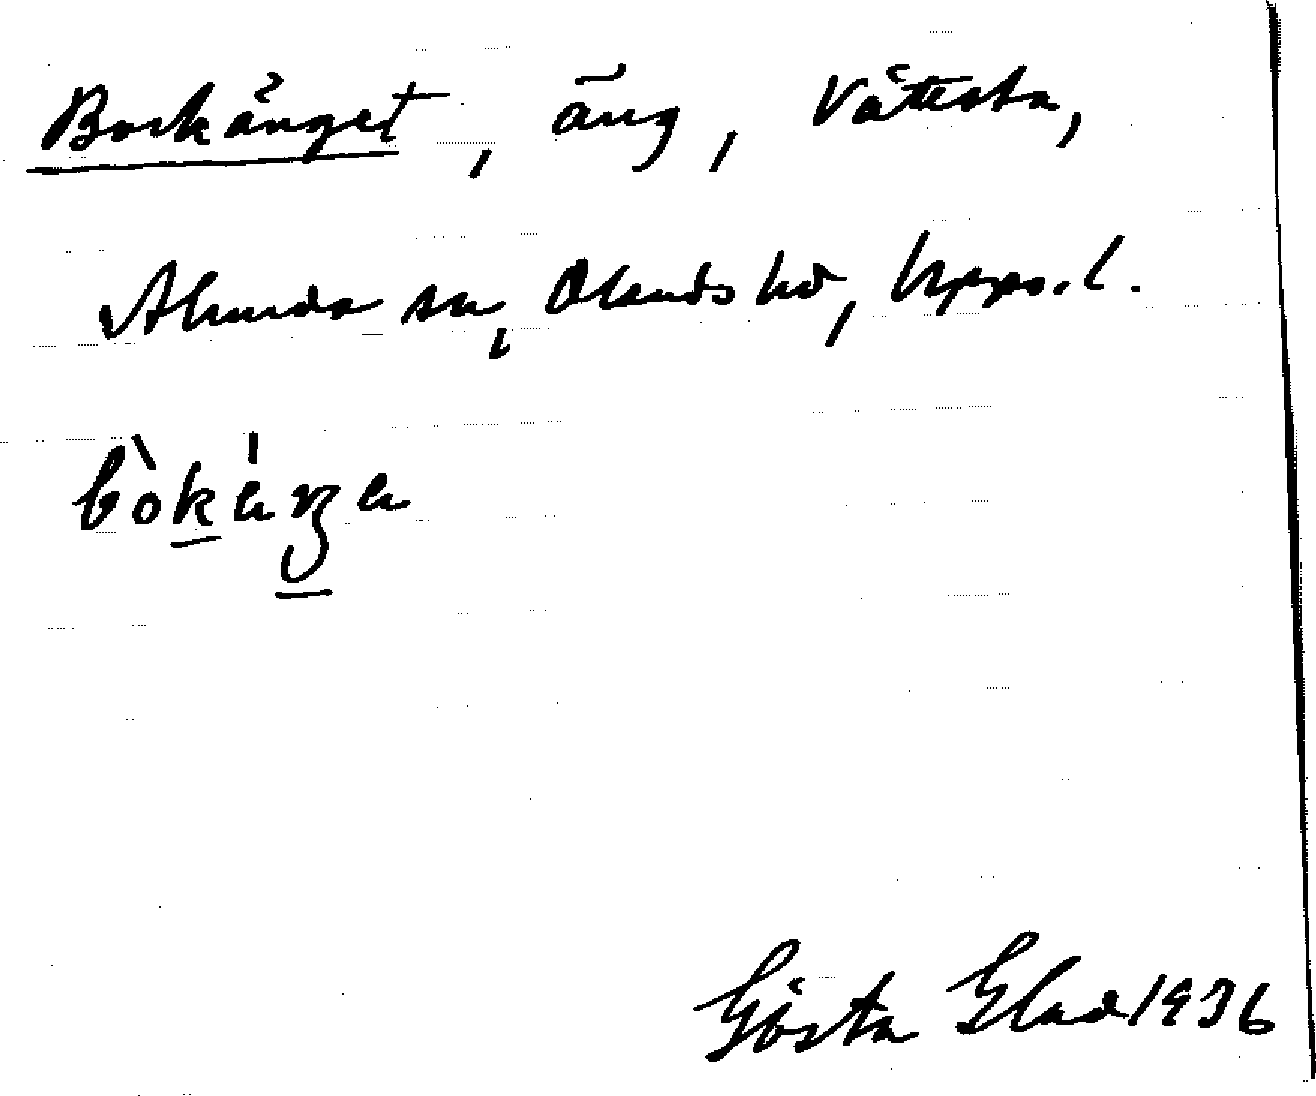 Bockänget, äng, Vättesta,
Alunda sn, Olands hd, Upps. l.
Gösta Elad 1936